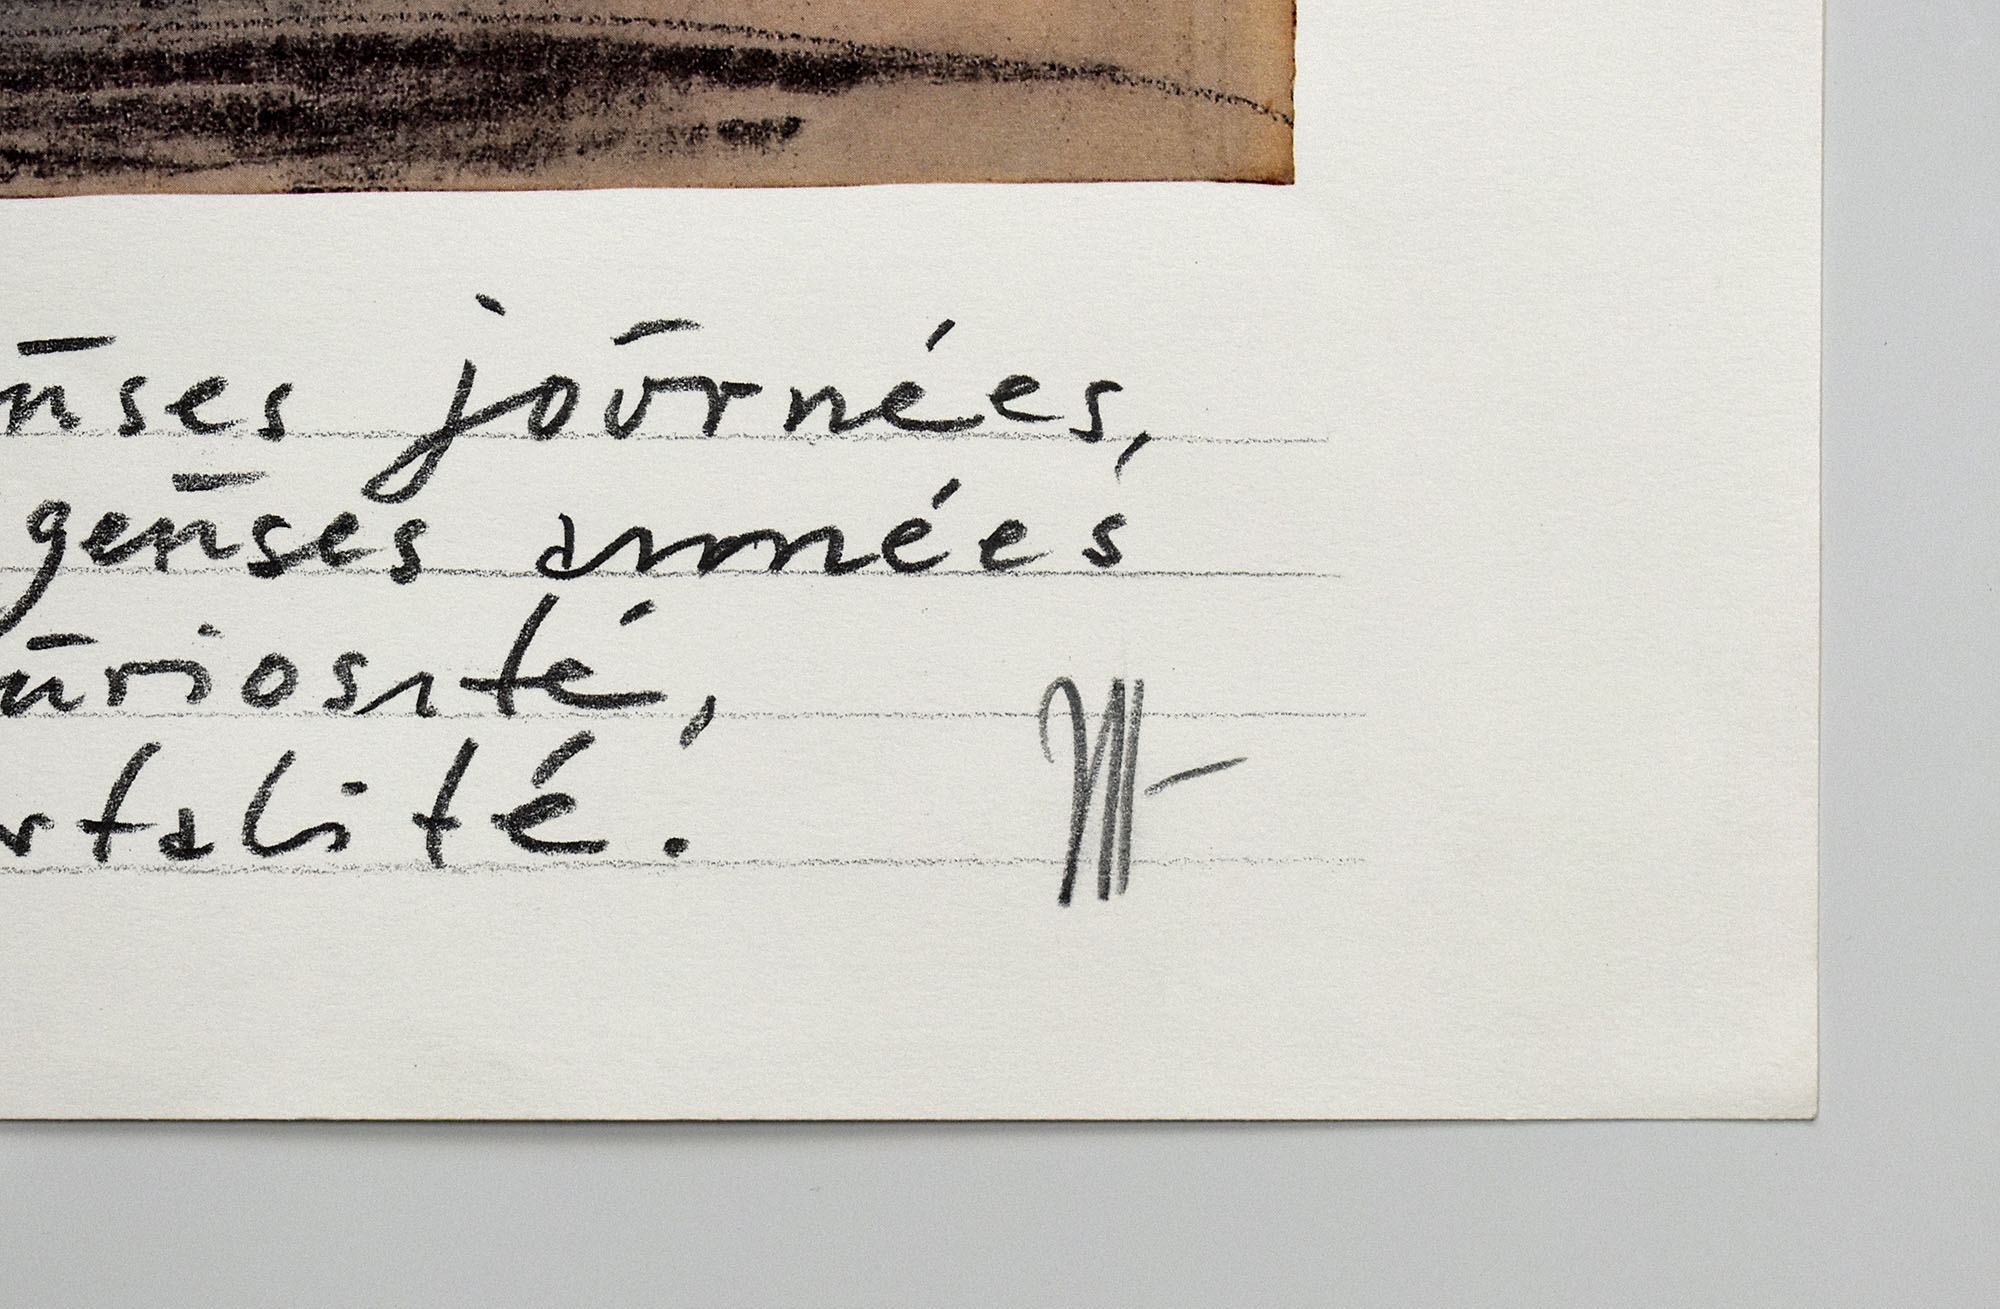 uses journées,
geuses années
uriosité,
rtalité.